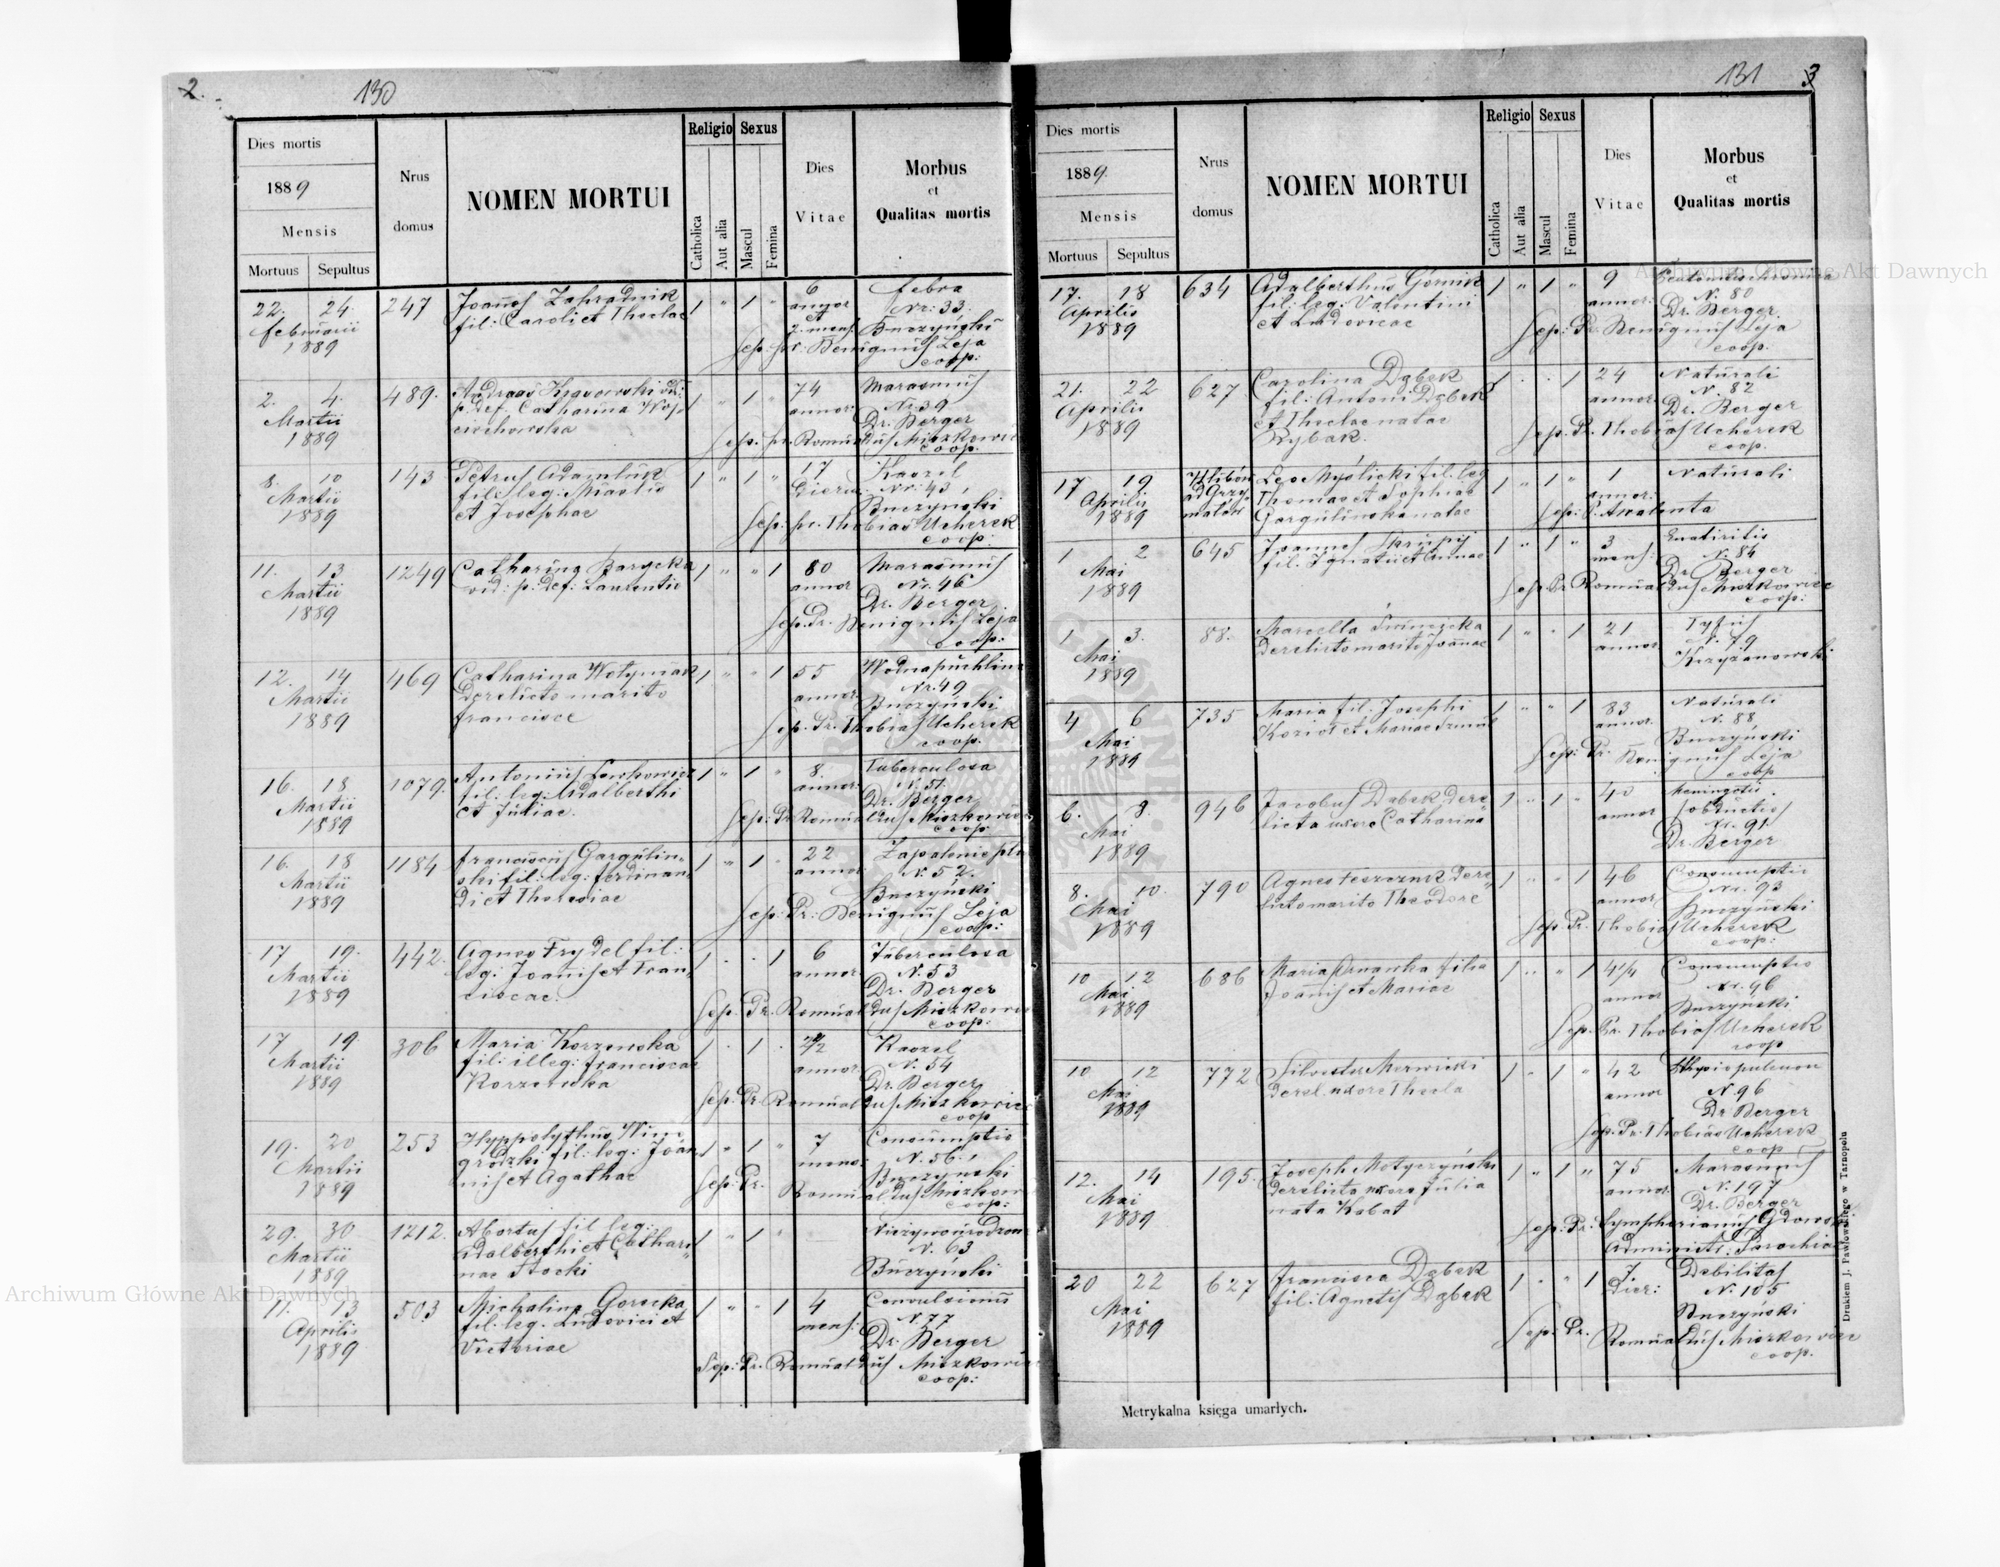 2.
130
Dies mortis
1889
Mensis
Mortuus Sepultus
Nrus
domus
NOMEN MORTUI
Religio
Catholica
Aut alia
Sexus
Mascul
Femina
Dies
Vitae
Morbus
et
Qualitas mortis
22. 24. 247 Joannes Zahradnik 1 " 1 " 6 febra
februarii fil: Caroli et Theclae annor Nr: 33.
1889 et
2 mens. Buczyński
Sep: pr: Benignus Leja
coop:
2. 4. 489. 1 " 1 " 74 Marasmus
Martii p. def. Catharina annor Nr 39
1889 Dr. Berger
Sep. pr. Romualdus
coop.
8. 10 143 Petrus 1 " 1 " 17 Kaszel
Martii fil: leg: Nr: 43
1889 et Josephae Buczyński
Sep. pr. Thobias Ucherek
coop:
11. 13 1249 Catharina Barycka 1 " " 1 80 Marasmus
Martii vid: p: def: Laurentio annor Nr. 46
1889 Dr. Berger
Sep. Pr. Benignus Leja
coop:
12. 14 469 Catharina Wotyniak 1 " " 1 55 Wodnapuchlina
Martii Derelicto marito annor Nr. 49
1889 francisce Buczyński
Sep. Pr. Thobias Ucherek
coop.
16. 18 1079. Antonius 1 " 1 " 8. Tuberculosa
Martii fil: leg: Adalberthi annor. N. 51.
1889 et Juliae. Dr. Berger
Sep: Pr Romualdus
coop:
16. 18 1184 franciscus Gargulin- 1 " 1 . 22
Martii ski fil: leg: ferdinan- annor N. 52.
1889 di et Theresiae Buczyński
Sep: Pr: Benignus Leja
coop:
17 19. 442. Agnes Frydel fil: 1 . . 1 6 Tuberculosa
Martii leg: Joanis et Fran- annor N. 53
1889 ciscae. Dr. Berger
Sep. Pr. Romualdus
coop:
17 19. 306 Maria Korzenska 1 . 1 . Kaszel
Martii fil: illeg: franciscae annor N. 54
1889 Dr. Berger
Sep. Pr. Romualdus
coop
19. 20 253 Hyppolythus Wino 1 " 1 " 7 Consumptio
Martii grodzki fil: leg: Joan mens. N. 56
1889 nis et Agathae Buczynski
Sep: Pr. Romualdus
coop:
29. 30 1212. Abortus fil leg: 1 " 1 "
Martii Adalberthi et Cathari N. 63
1889 nae Buczyński
11. 13 503 Michalina Gorecka 1 " " 1 4 Convulsionis
Aprilis fil. leg. Ludovici et mens: N 77
1889 Victoriae Dr. Berger
Sep: Pr. Romualdus
coop:
131
3
Dies mortis
1889.
Mensis
Mortuus Sepultus
Nrus
domus
NOMEN MORTUI
Religio
Catholica
Aut alia
Sexus
Mascul
Femina
Dies
Vitae
Morbus
et
Qualitas mortis
17. 18 634 Adalberthus Górnik 1 " 1 " 9
Aprilis fil: leg: Valentini annor: N. 80
1889 et Ludovicae Dr. Berger.
Sep: Pr. Benignus Leja
coop.
21. 22 627 Carolina Dąbek 1 . . 1 24 Naturali
Aprilis fil: Antoni Dąbek annor. N. 82
1889 et Theclae natae Dr. Berger
Rybak. Sep. Pr. Thobias Ucherek
coop.
17 19 Leo fil. leg 1 " 1 " 1 Naturali
Aprilis ad Grzy- Thomas et Sophiae annor.
1889 małów Gargulinska natae Sep: P.
1 2 645 Joannes 1 " 1 " 3
Mai fil. Ignatii et Annae mens: N. 84
1889 Dr. Berger
Sep. Pr Romualdus
coop:
1 3. 88. Marcella 1 " " 1 21 Tyfus
Mai Derelicto marito Joanne annor N. 79
1889 Krzyżanowski
4 6 735 Maria fil. Josephi 1 " " 1 83 Naturali
Mai Kozioł et Mariae annor. N. 88
1889 Buczyński
Sep: Pr. Benignus Leja
coop
6. 8. 946 Jacobus Dąbek dere 1 " 1 " 40
Mai licta uxore Catharina annor
1889 Nr. 91.
Dr. Berger
8. 10. 790 Agnes dere 1 " " 1 46 Consumptio
Mai licto marito Theodore annor Nr. 93
1889 Buczyński
Sep. Pr. Thobias Ucherek
coop:
10 12 686 Maria filia 1 " " 1 4¼ Consumptio
Mai Joanis et Mariae annor Nr. 96
1889 Buczynski
Sep. Pr. Thobias Ucherek
coop
10 12 772 Silvester 1 " 1 " 42
Mai Derel. uxore Thecla annor N. 96
1889 Dr Berger
Sep. Pr. Thobias Ucherek
coop
12. 14 195. Joseph Motyczyński 1 " 1 " 75 Marasmus
Mai Derelicta uxore Julia annor. N. 197
1889 nata Kabat Dr. Berger
Sep: Pr: Sympherianus
Administ: Parochiae
20 22 627 Francisca Dąbek 1 " " 1 7. Debilitas
Mai fil: Agnetis Dąbek Dier: N. 105
1889 Buczyński
Sep: Pr. Romualdus
coop.
Metrykalna księga umarłych.
Drukiem J. Pawłowskiego w Tarnopolu
Archiwum Główne Akt Dawnych
Archiwum Główne Akt Dawnych